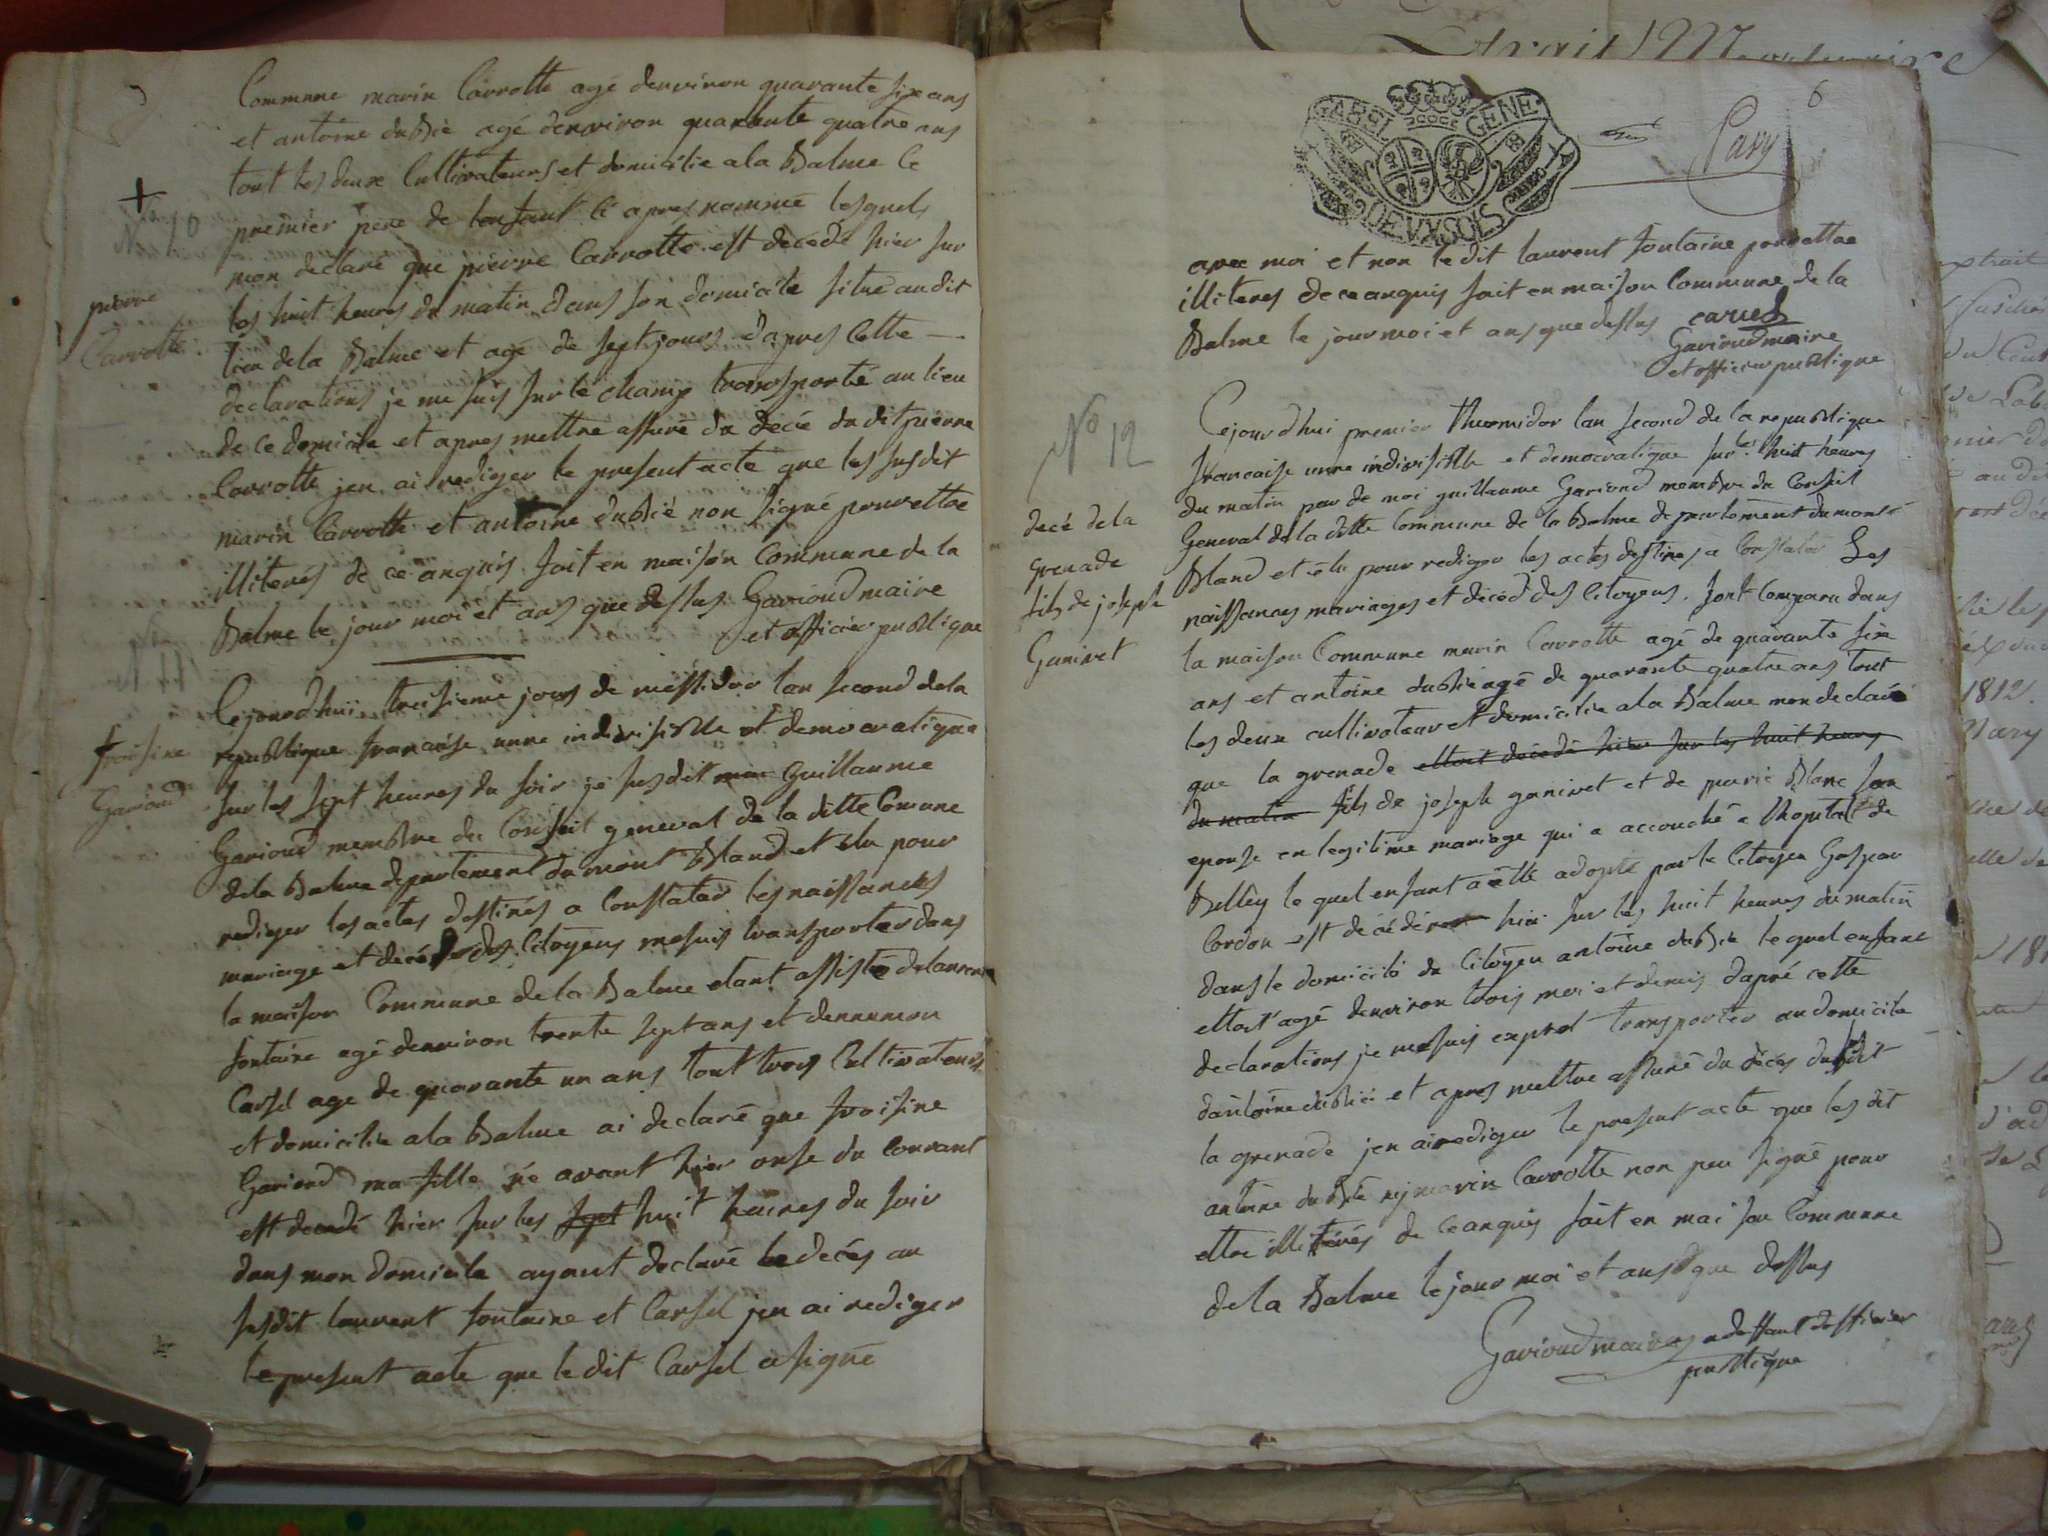 Commune marin Carrotte agé denviron quarante six ans
et antoine dublié agé denviron quarante quatre ans
tout les deux Cultivateurs et domicilie a la Balme le
premier pere de lenfant ci apres nommé lesquels
mon declaré que pierre Carrotte est decedé hier sur
les huit heures du matin dans son domicile situé audit
lieu de la Balme et agé de sept jours dapres Cette
declarations je me suis sur le champ transporté au lieu
de ce domicile et apres mettre assuré du decé du dit pierre
Carrotte jen ai rediger le present acte que les susdit
marin Carrotte et antoine dublié non signé pour ettre
illiterés de ce anquis fait en maison Commune de la
Balme le jour moi et ans que dessus Garioud maire
et officier publique
+
No 10
pierre
Carrotte
Cejourdhui treisieme jours de messidor lan second de la
republique francaise unne indivisiblle et democratique
sur les sept heures du soir je susdit Guillaume
Garioud membre du Conseil general de la ditte Comune
de la Balme departement du mont Bland et élu pour
rediger les actes destinés a Constater les naissances
mariage et decéd des Citoyens me suis transporter dans
la maison Commune de la Balme etant assisté de laurent
fontaine agé denviron trente sept ans et dennemon
Carsel age de quarante un ans tout trois Cultivateurs
et domicilie a la Balme ai declaré que froisine
Garioud ma fille né avant hier onse du courrant
est decedé hier sur les sept huit heures du soir
dans mon domicile ayant declaré le decés au
susdit laurent fontaine et Carsel jen ai rediger
le present acte que le dit Carsel a signé
froisine
Garioud
6
GABSI GENE
DEVX SOLS
Pavy
avec moi et non le dit laurent fontaine pour ettre
illiteres de ce anquis fait en maison Commune de la
Balme le jour moi et ans que dessus
Garioud maire
et officier publique
No 12
decé de la
grenade
fils de joseph
Ganivet
Cejourdhui premier thermidor lan second de la republique
francaise unne indivisiblle et democratique sur les huit heures
du matin par de moi guillaume Garioud membre du Conseil
General de la ditte Commune de la Balme departement du mont
Bland et élu pour rediger les actes destines a Constater Les
naissances mariages et décéd des Citoyens. sont Comparu dans
la maison Commune marin Carrotte agé de quarante six
ans et antoine dublié agé de quarante quatre ans tout
les deux cultivateur et domicilie a la Balme mon declaré
que la grenade ettoit decedé hier sur les huit heures
du matin fils de joseph ganivet et de marie Blanc son
epouse en legitime mariage qui a accouché a lhopital de
Belley le quel enfant a été adopté par le Citoyen Gaspar
Cordon est décédé hier sur les huit heures du matin
dans le domicile du Citoyen antoine dublié le quel enfant
ettoit agé denviron trois moi et demis dapré cette
declarations je me suis exprest transporter au domicile
dantoine dublié et apres mettre assuré du décés du susdit
la grenade jen ai rediger le present acte que les dit
antoine dublié nij marin Carrotte non peu signé pour
ettre illiterés de ce anquis fait en maison Commune
de la Balme le jour moi et ans que dessus
Garioud maire a deffaut dofficier
publique